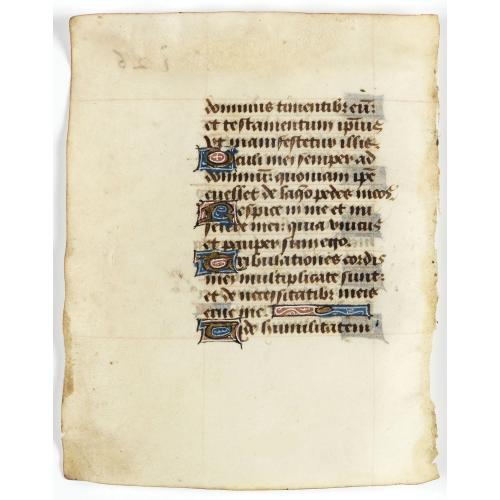 dominus timentibꝫ eū:
et testamentum ipīus
ut manifestetur illis
Oculi mei semper ad
dominū: quoniam ipē
euellet de laq̄o pedes meos
Respice in me et mi
serere mei: quia unicus
et pauper sum ego.
Tribulationes cordis
mei multiplicate sunt:
et de necessitatibꝫ meis
erue me.
Vide humilitatem